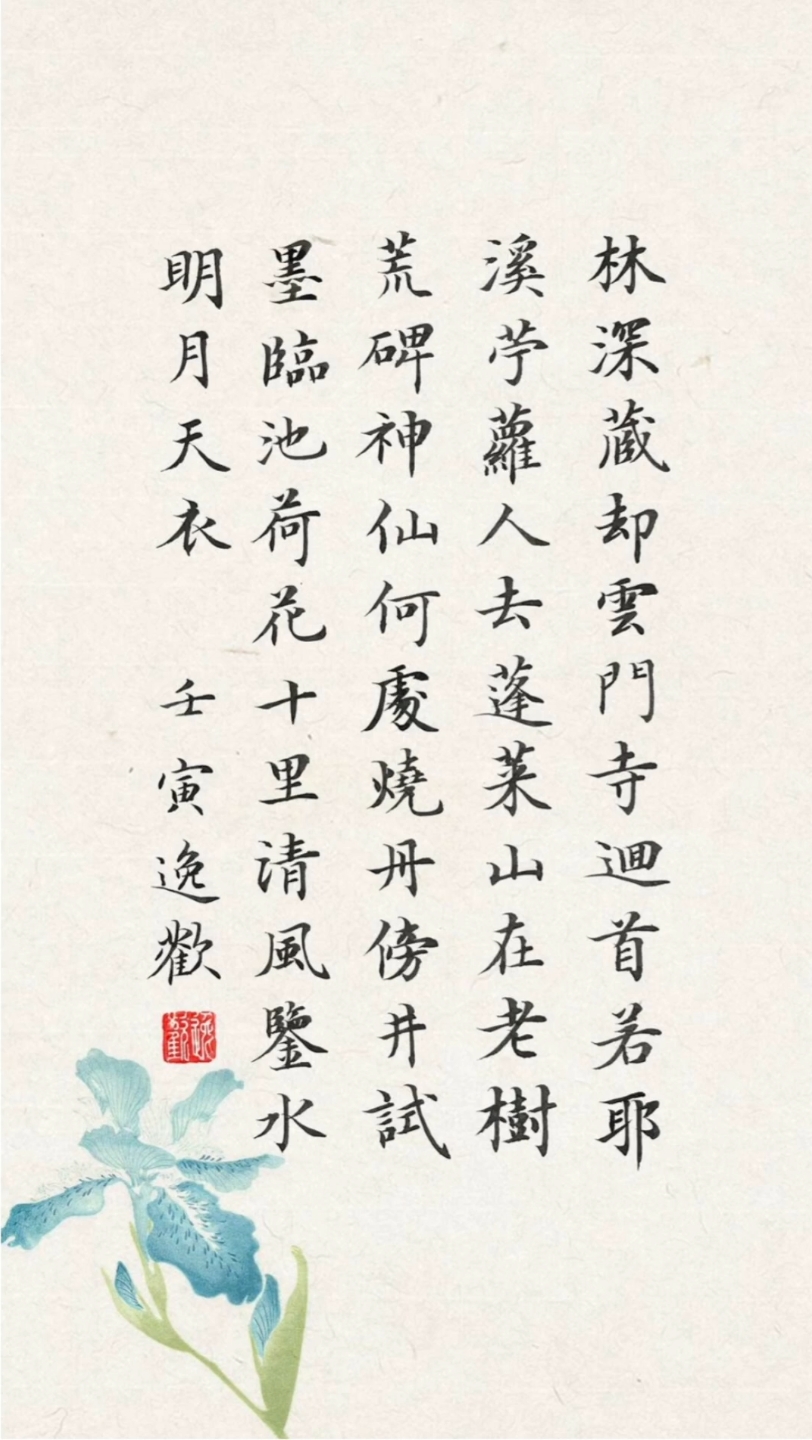 林深蔵却雲門寺迴首若耶
溪苧蘿人去蓬萊山在老樹
荒碑神仙何處燒丹傍井試
墨臨池荷花十里清風鑒水
明月天衣
壬寅逸歡
逸歡